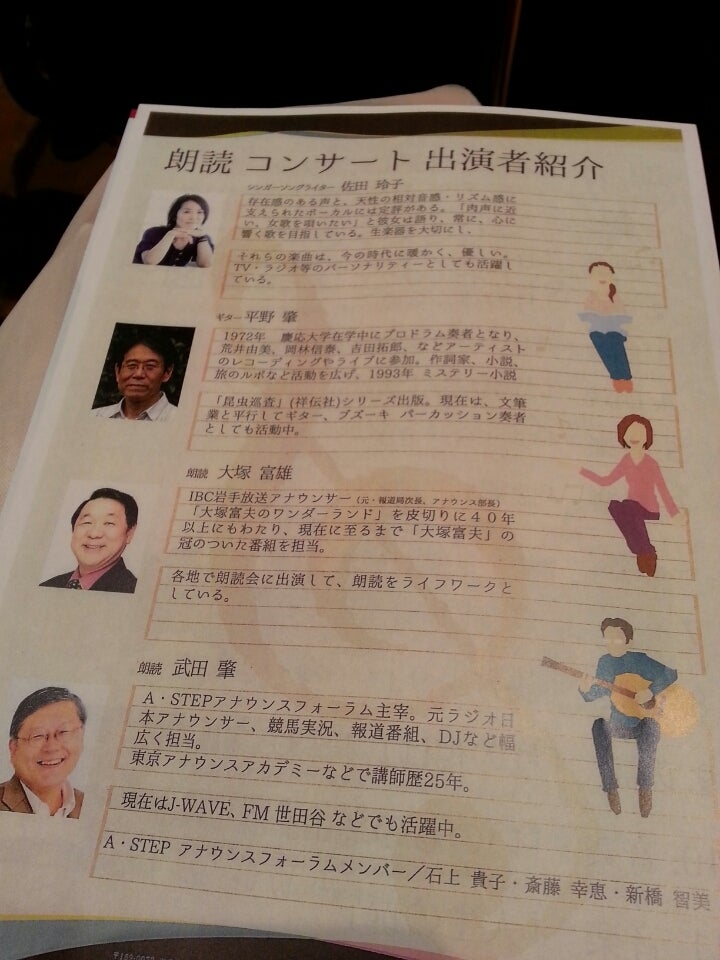 朗読 コンサート 出演者紹介
シンガーソングライター 佐田 玲子
存在感のある声と、天性の相対音感・リズム感に
支えられたボーカルには定評がある。「肉声に近
い、女歌を唄いたい」と彼女は語り、常に、心に
響く歌を目指している。生楽器を大切にし、
それらの楽曲は、今の時代に暖かく、優しい。
TV・ラジオ等のパーソナリティーとしても活躍し
ている。
ギター 平野 肇
1972年 慶応大学在学中にプロドラム奏者となり、
荒井由美、岡林信泰、吉田拓郎、などアーティスト
のレコーディングやライブに参加。作詞家、小説、
旅のルポなど活動を広げ、1993年 ミステリー小説
「昆虫巡査」(祥伝社)シリーズ出版。現在は、文筆
業と平行してギター、ブズーキ パーカッション奏者
としても活動中。
朗読 大塚 富雄
IBC岩手放送アナウンサー（元・報道局次長、アナウンス部長）
「大塚富夫のワンダーランド」を皮切りに４０年
以上にもわたり、現在に至るまで「大塚富夫」の
冠のついた番組を担当。
各地で朗読会に出演して、朗読をライフワークと
している。
朗読 武田 肇
A・STEPアナウンスフォーラム主宰。元ラジオ日
本アナウンサー、競馬実況、報道番組、DJなど幅
広く担当。
東京アナウンスアカデミーなどで講師歴25年。
現在はJ-WAVE、FM 世田谷 などでも活躍中。
A・STEP アナウンスフォーラムメンバー／石上 貴子・斎藤 幸恵・新橋 智美